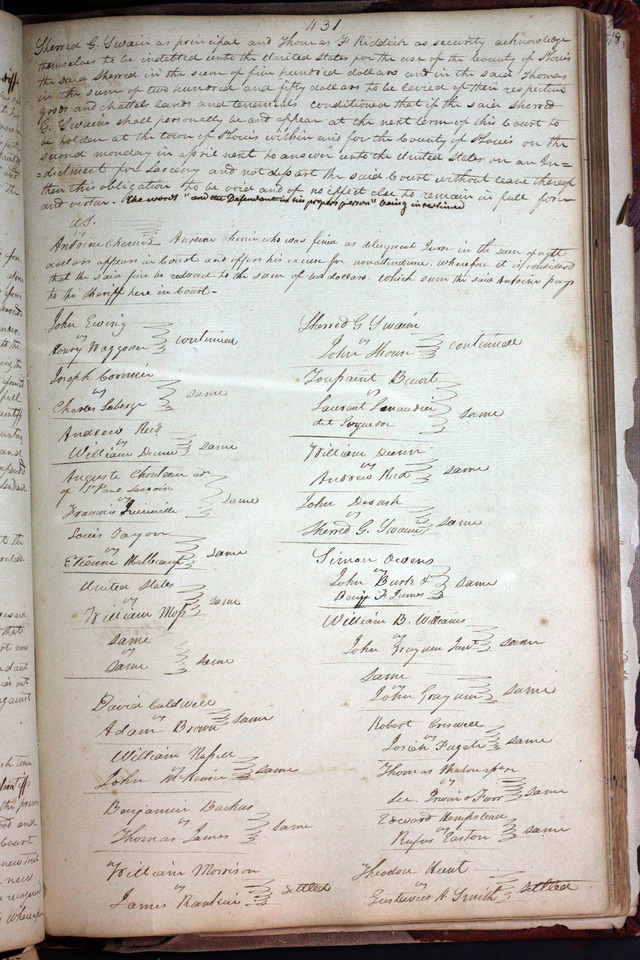 431
Sherred G. Swain as principal and Thomas F Riddick as security acknowledge
themselves to be indebted unto the United States for the use of the County of St Louis
the said Sherred in the sum of five hundred dollars and in the said Thomas
in the sum of two hundred and fifty dollars to be levied of their respective
goods and chattels lands and tenements conditioned that if the said Sherred
G. Swain shall personally be and appear at the next term of this Court to
be holden at the town of St Louis within and for the County of St Louis on the
second monday in april next to answer unto the United States on an In=
=dictment for Larceny and not depart the said Court without leave thereof
then this obligation to be void and of no effect else to remain in full force
and virtue. The words "and the Defendant in his proper person" being interlined
U.S.
vs
Antoine Chenie Antoine Chenie who was fined as delinquent Juror in the sum of eight
dollars appears in Court and offers his excuse for nonattendance. Wherefore it is considered
that the said fine be reduced to the sum of two dollars. Which sum the said Antoine pays
to the Sheriff here in Court.
John Ewing
vs
Henry Waggoner continued
Joseph Cormier
vs
Charles Leberge same
Andrew Reid
vs
William Dunn same
Auguste Chouteau adr
of St Paul Lacroix
vs
Francois same
Louis
vs
Etienne same
United States
vs
William Moss same
same
vs
same same
David Caldwell
vs
Adam Brown same
William Russell
vs
John McKinnie same
Benjamin Backus
vs
Thomas James same
William Morrison
vs
James Rankin settled
Sherred G. Swain
vs
John continued
Toussaint
vs
Laurent
dit same
William Dunn
vs
Andrew Reid same
John
vs
Sherred G. Swain same
Simon Owens
vs
John Burk &
Benj F James same
William B. Williams
vs
John Grayum Junr same
same
vs
John Grayum same
Robert Creswell
vs
Josiah Fugate same
Thomas
vs
same
Edward Hempstead
vs
Rufus Easton same
Theodore Hunt
vs
Gustavus A Smith settled